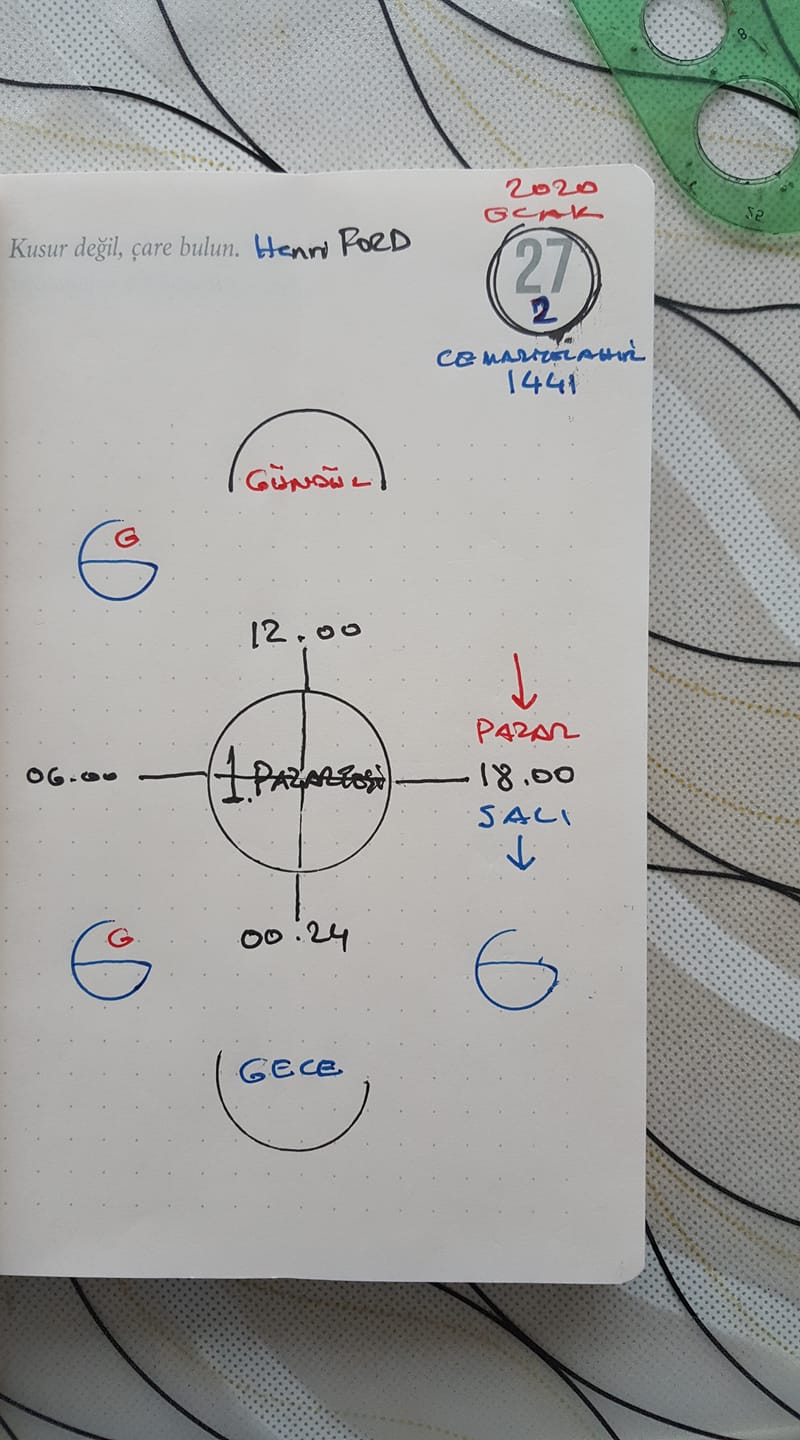 2020
OCAK
Kusur değil, çare bulun. Henri FORD
27
2
CEMAZİYELAHİR
1441
GÜNDÜZ
G
12.00
PAZAR
06.00
1.PAZARTESİ
18.00
SALI
G
00.24
GECE